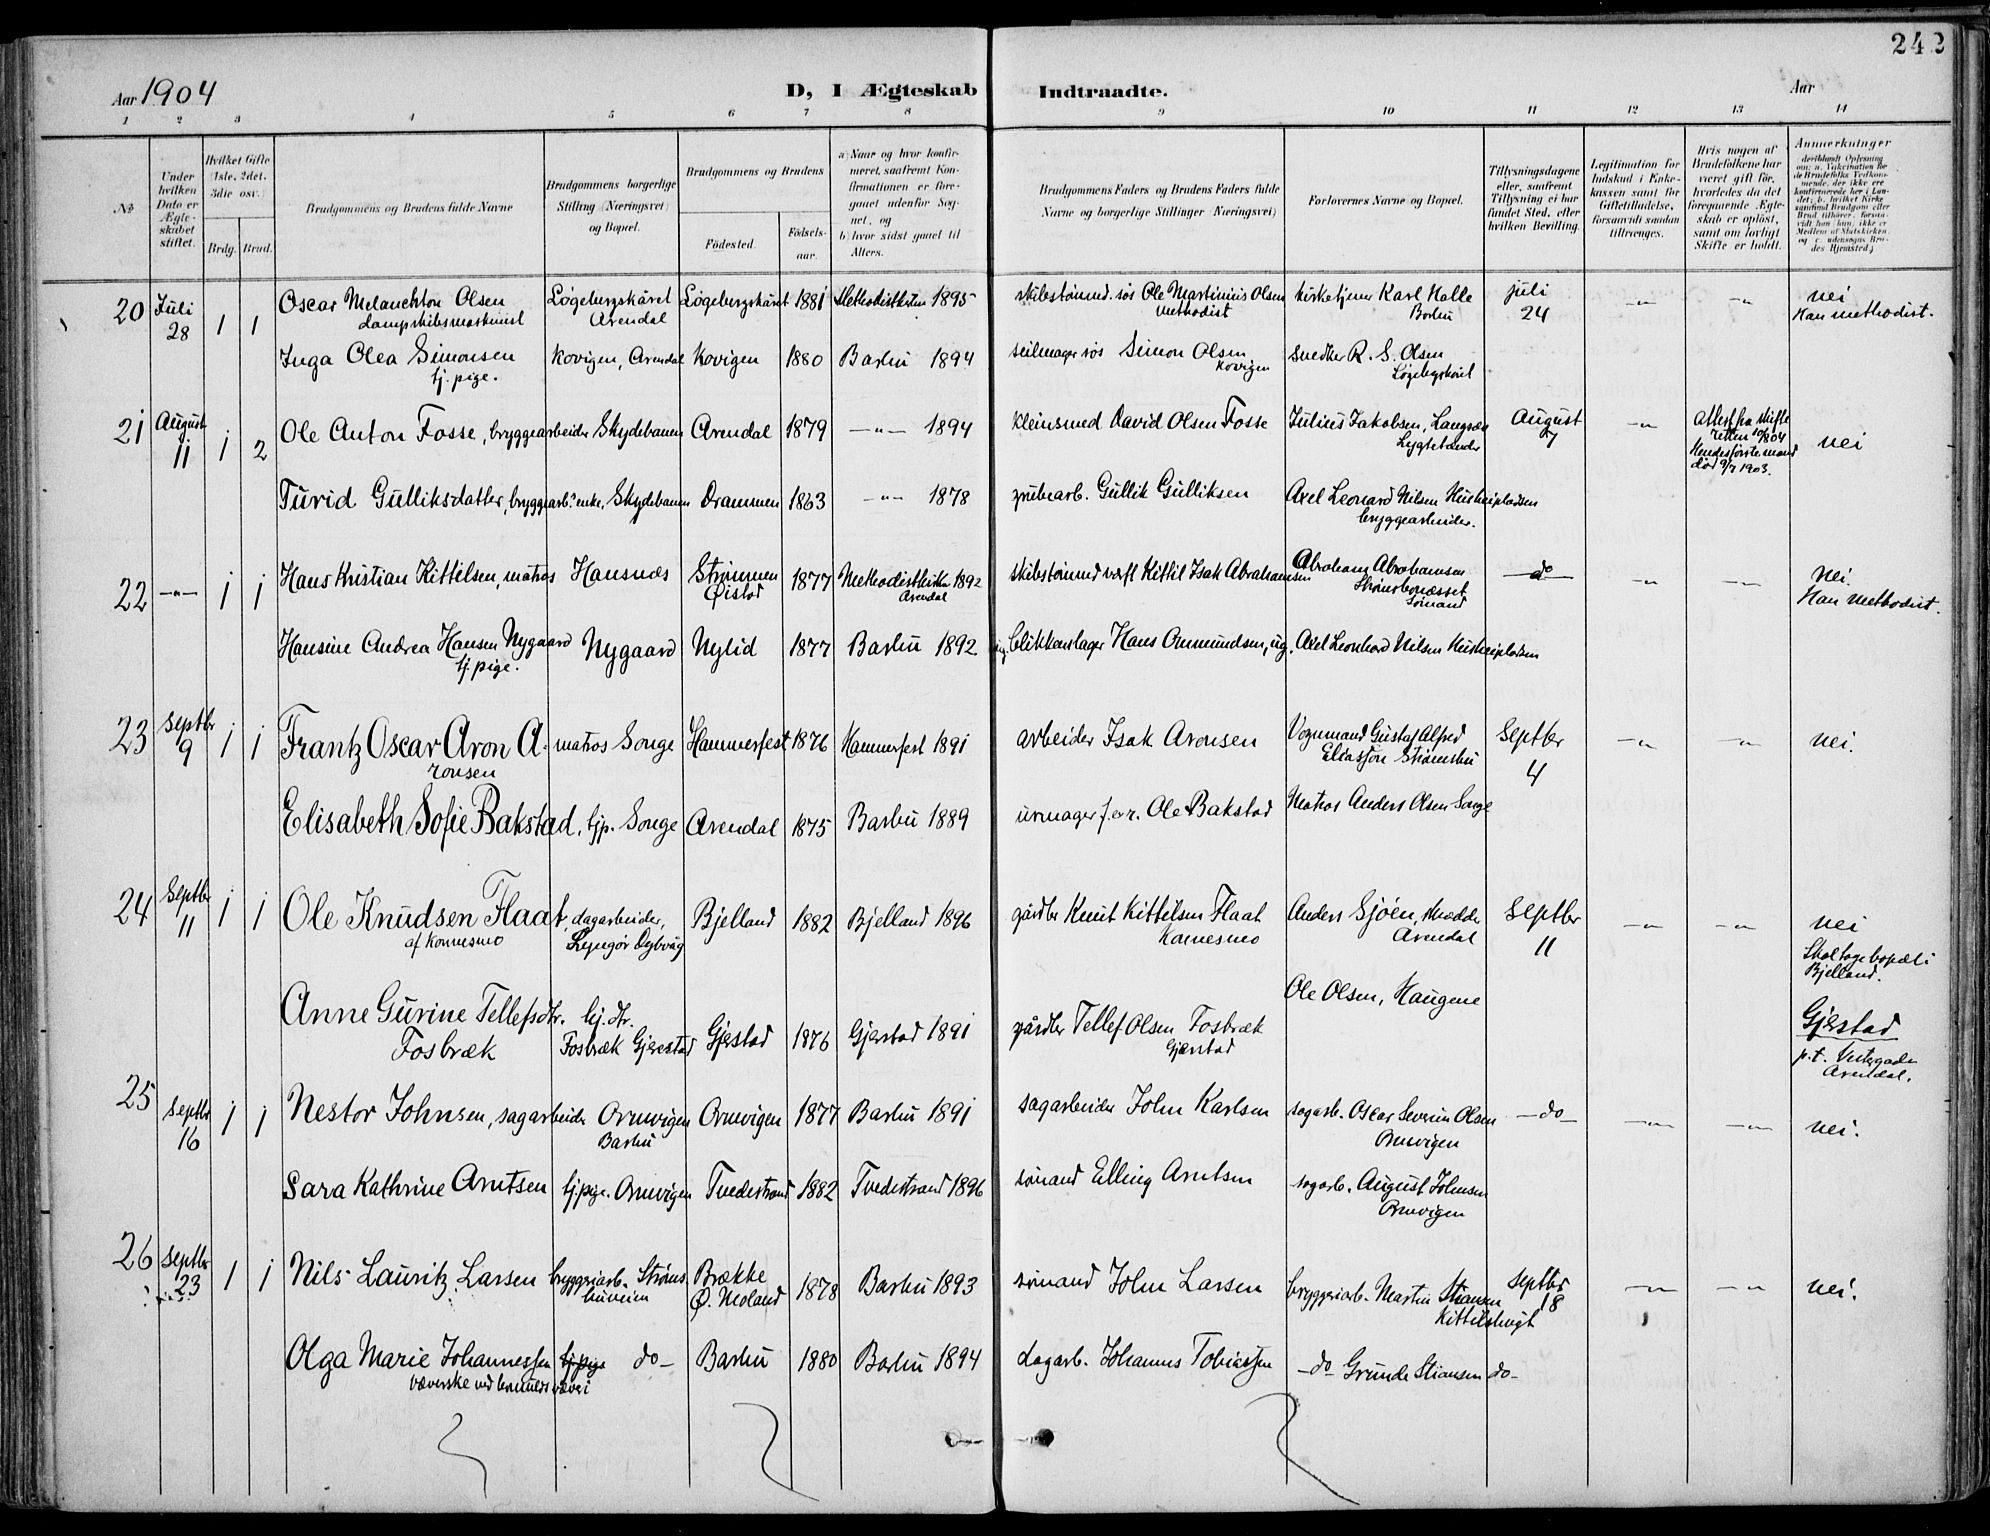 242
Aar 1904
D, I Ægteskab Indtraadte.
Aar
1 2 3 4 5 6 7 8 9 10 11 12 13 14
No
Under hvilken Dato er Ægteskabet stiftet.
Hvilket Gifte (1ste, 2det, 3die osv.)
Brdg. Brud.
Brudgommens og Brudens fulde Navne
Brudgommens borgerlige Stilling (Næringsvei) og Bopæl.
Brudgommens og Brudens
Födested.
Födselsaar.
a) Naar og hvor konfirmeret, saafremt Konfirmationen er foregaaet udenfor Sognet, og
b) hvor sidst gaaet til Alters.
Brudgommens Faders og Brudens Faders fulde Navne og borgerlige Stillinger (Næringsvei)
Forlovernes Navne og Bopæl.
Tillysningsdagene eller, saafremt Tillysning ei har fundet Sted, efter hvilken Bevilling.
Legitimation for Indskud i Enkekassen samt for Giftetilladelse, forsaavidt saadan tiltrænges.
Hvis nogen af Brudefolkene har været gift før, hvorledes da det foregaaende Ægteskab er oplöst, samt om lovligt Skifte er holdt.
Anmerkninger
20 Juli 28 1 1 Oscar Melanchton Olsen Løgebergskåret Løgebergskåret 1881 Methodistkirken 1895 skibstømmd. søs Ole Martinius Olsen kirketjener Karl Halle juli 24 -"- -"- nei
dampskibsmaskinist Arendal Methodist Barbu Han methodist.
Inga Olea Simonsen kovigen, Arendal kovigen 1880 Barbu 1894 seilmager søs Simon Olsen snedker R. S. Olsen
tj. pige. kovigen
21 August 11 1 2 Ole Anton Fosse, bryggearbeider Skydebanen Arendal 1879 -"- 1894 kleinsmed David Olsen Fosse Julius Jakobsen, Langsæ August 7 -"- Attest fra skifte
retten 10/8 04 nei
Hendes første mand
død 9/7 1903.
Turid Gulliksdatter, bryggearb. enke, Skydebanen Drammen 1863 -"- 1878 grubearb. Gullik Gulliksen Axel Leonard Nilsen
bryggearbeider.
22 -"- 1 1 Hans Kristian Kittilsen, matros Hansnæs Strømmen 1877 Methodistkirken 1892 skibstømmd Kittil Isak Abrahamsen Abraham Abrahamsen -do- -"- -"- nei.
Øistad Arendal Sømand Han methodist.
Hansine Andrea Hansen Nygaard Nygaard Nylid 1877 Barbu 1892 blikkenslager Hans Ommundsen, Axel Leonhard Nilsen
tj. pige.
23 Septbr 9 1 1 Frantz Oscar Aron A- matros Songe Hammerfest 1876 Hammerfest 1891 arbeider Isak Aronsen Vognmand Gustaf Alfred Septbr 4 -"- -"- nei.
ronsen Eliasson Strømsbu
Elisabeth Sofie Bakstad, tjp. Songe Arendal 1875 Barbu 1889 urmager Ole Bakstad Matros Anders Olsen Songe
24 Septbr 11 1 1 Ole Knudsen Flaat, dagarbeider, Bjelland 1882 Bjelland 1896 gårdbr Knut Kittilsen Flaat Anders Sjöen, skrædder Septbr 11 -"- -"- nei
af Konnesmo Lyngør Dybvåg Konnesmo Arendal Skal tage bopæl i
Bjelland.
Anne Gurine Tellefsdtr. hj. dtr. Ole Olsen, Haugene
Fosbræk Fosbræk Gjerestad Gjestad 1876 Gjerstad 1891 gårdbr Tellef Olsen Fosbræk Gjestad
Gjerstad p.t. Vestergaden
Arendal.
25 Septbr 16 1 1 Nestor Johnsen, sagarbeider Ormvigen Ormvigen 1877 Barbu 1891 sagarbeider John Karlsen sagarb. Oscar Severin Olsen -do- -"- -"- nei.
Barbu Ormvigen
Sara Kathrine Arntsen tj. pige. Ormvigen Tvedestrand 1882 Tvedestrand 1896 sømand Elling Arntsen sagarb. August Johnsen
Ormvigen
26 Septbr 23 1 1 Nils Lauritz Larsen bryggeriarb. Strøms- Brække 1878 Barbu 1893 sømand John Larsen bryggeriarb. Martin Stiansen Septbr 18 -"- -"- nei.
buveien Ø. Moland Kittilsbugt
Olga Marie Johannessen tj. pige do- Barbu 1880 Barbu 1894 dagarb. Johannes Tobiassen -do- Grunde Stiansen do-
væverske ved væveri